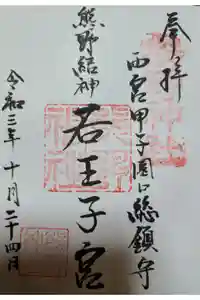 奉拝
西宮甲子園口総鎮守
若王子宮
熊野結神
令和三年十月二十四日